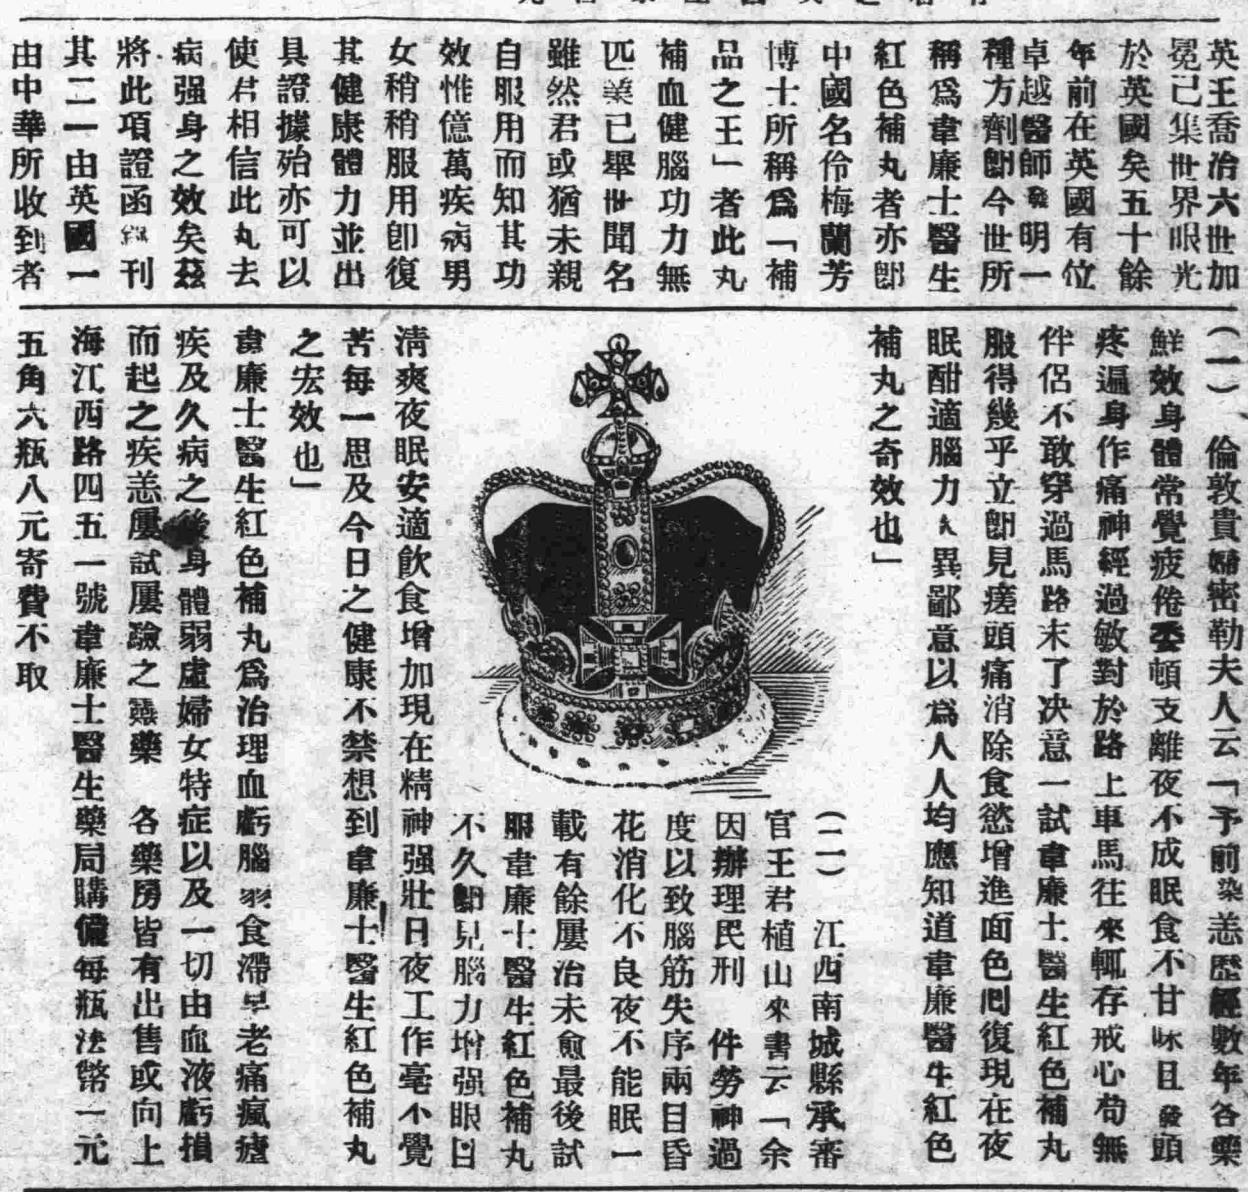 英王喬治六世加
冕已集世界眼光
於英國矣五十餘
年前在英國有位
卓越醫師發明一
種方劑卽今世所
稱爲韋廉士醫生
紅色補丸者亦卽
中國名伶梅蘭芳
博士所稱爲「補
品之王」者此丸
補血健腦功力無
匹業已舉世聞名
雖然君或猶未親
自服用而知其功
效惟億萬疾病男
女稍稍服用卽復
其健康體力並出
具證據殆亦可以
使君相信此丸去
病强身之效矣茲
將此項證函刊
其二一由英國一
由中華所收到者
(一) 倫敦貴婦密勒夫人云「予前染恙歷經數年各藥
鮮效身體常覺疲倦委頓支離夜不成眠食不甘味且發頭
疼遍身作痛神經過敏對於路上車馬往來輒存戒心苟無
伴侶不敢穿過馬路末了決意一試韋廉士醫生紅色補丸
服得幾乎立卽見瘥頭痛消除食慾增進面色囘復現在夜
眠酣適腦力大異鄙意以爲人人均應知道韋廉醫生紅色
補丸之奇效也」
(二) 江西南城縣承審
官王君植山來書云「余
因辦理民刑 件勞神過
度以致腦筋失序兩目昏
花消化不良夜不能眠一
載有餘屢治未愈最後試
服韋廉士醫生紅色補丸
不久卽見腦力增强眼目
淸爽夜眠安適飲食增加現在精神强壯日夜工作毫不覺
苦每一思及今日之健康不禁想到韋廉士醫生紅色補丸
之宏效也」
韋廉士醫生紅色補丸爲治理血虧腦弱食滯早老痛瘋瘧
疾及久病之後身體弱虛婦女特症以及一切由血液虧損
而起之疾恙屢試屢驗之藥 各藥房皆有出售或向上
海江西路四五一號韋廉士醫生藥局購備每瓶法幣一元
五角六瓶八元寄費不取